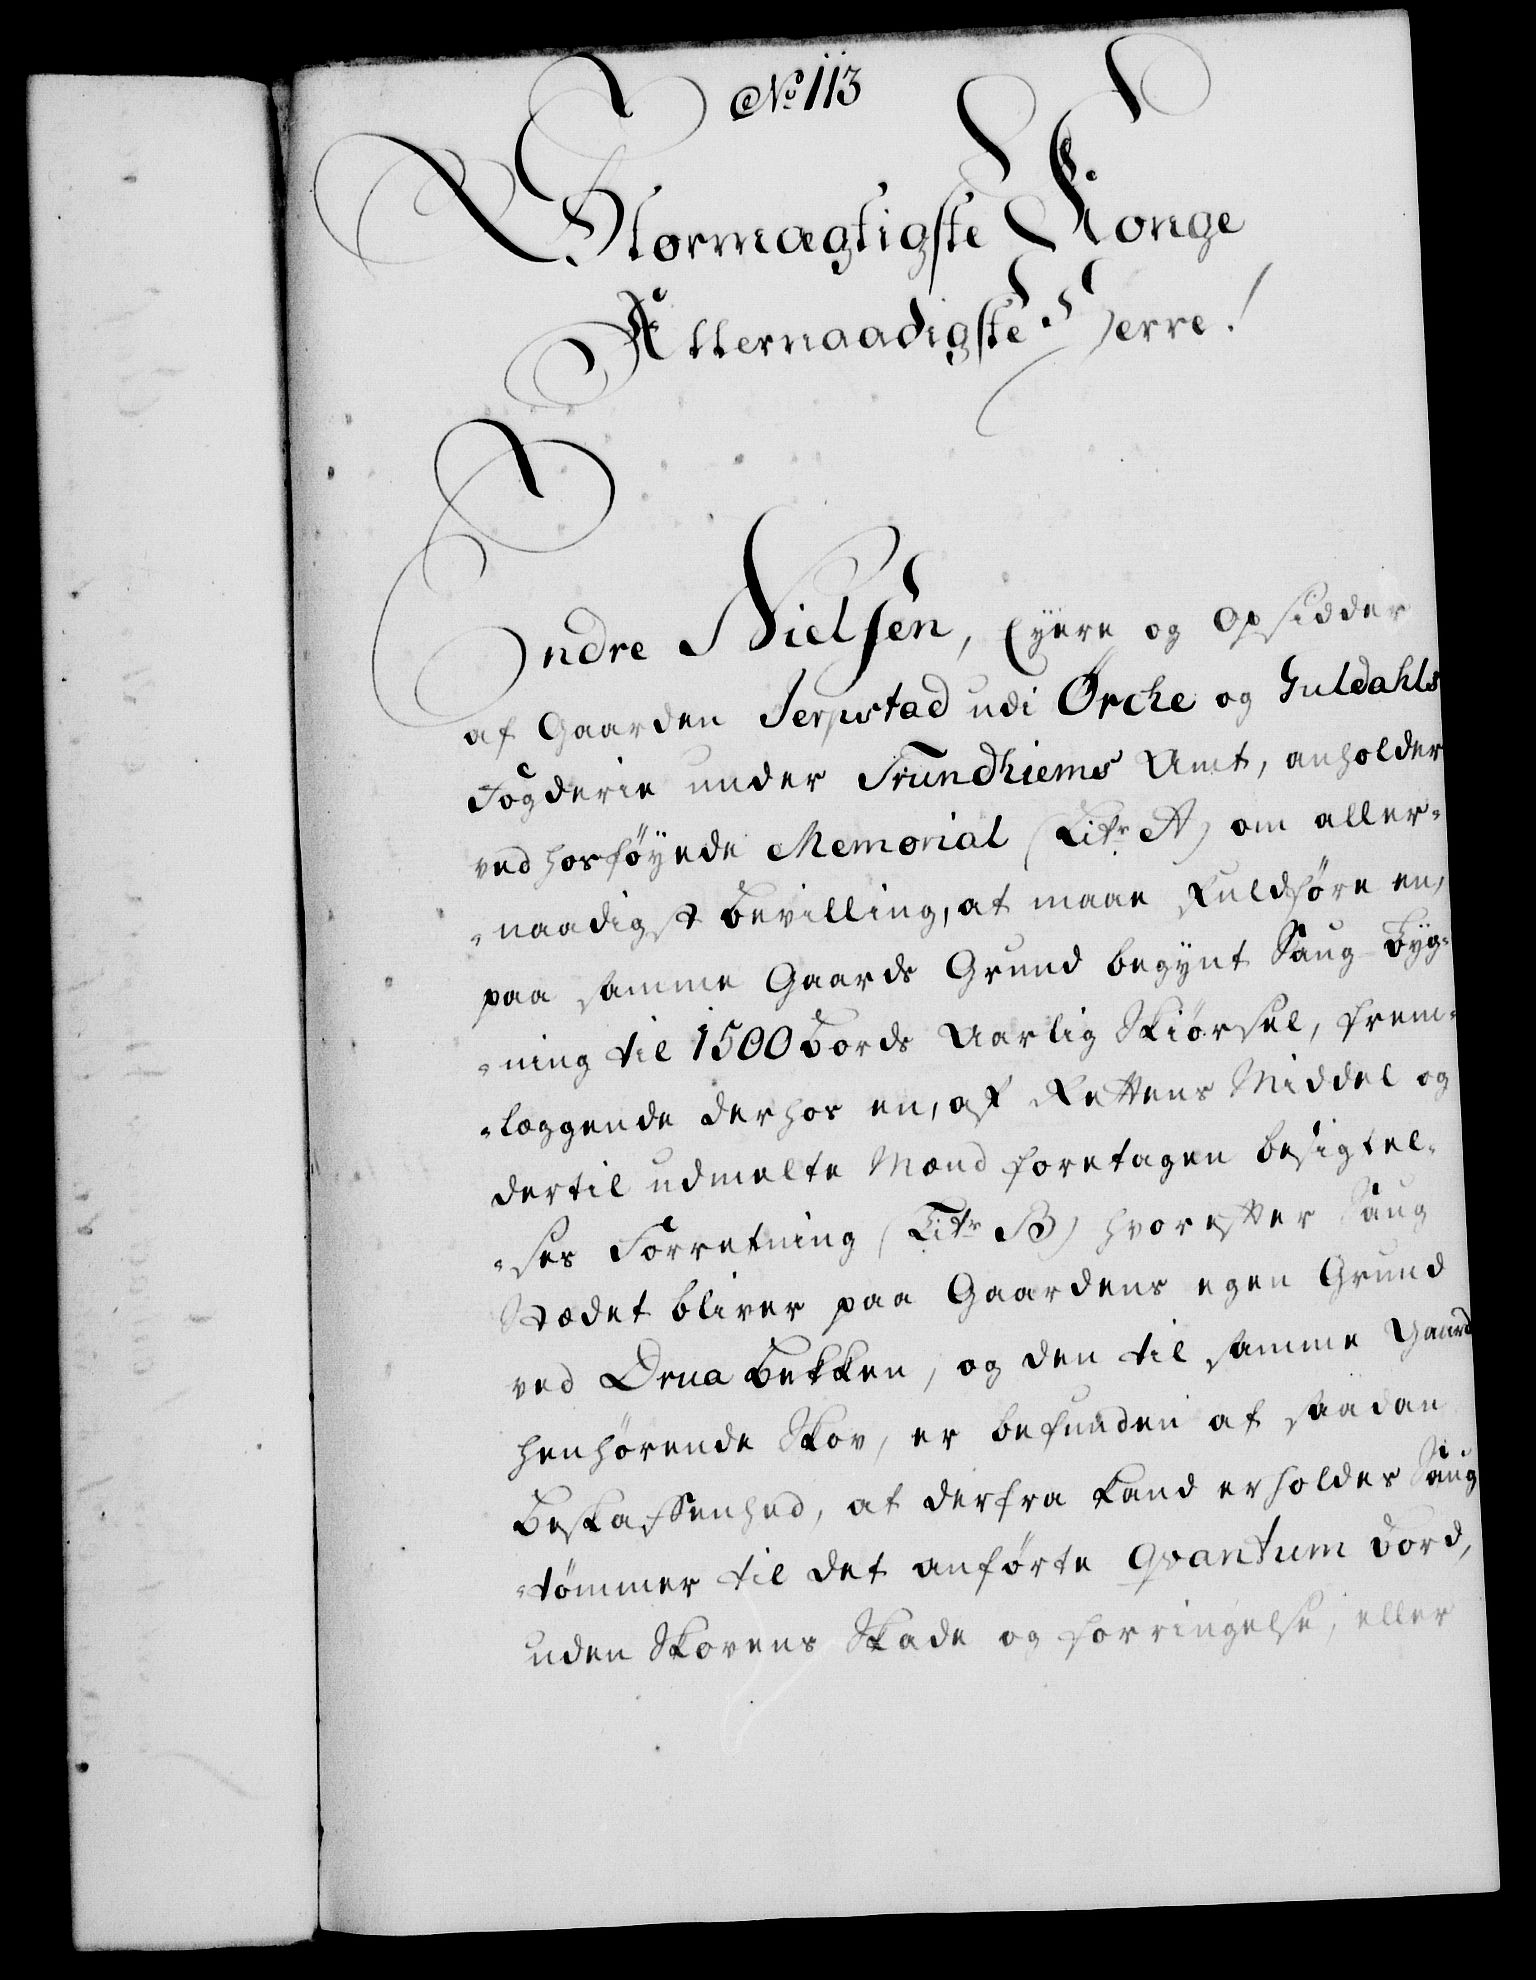 No 113
Stormægtigste Konge
Allernaadigste Herre!
Endre Nielsen, Eyere og Opsidder
af Gaarden Jerpstad udi Orche og Guldahls
Fogderie under Trundhiems Amt, anholder
ved hosføyede Memorial (Litr A) om aller-
-naadigst Bevilling, at maae Fuldføre en,
paa samme Gaards Grund begynt Saug-Byg-
-ning til 1500 Bords Aarlig Skiørsel, frem-
-læggende derhos en, af Rettens Middel og
dertil udmelte Mænd foretagen besigtel-
-ses Forretning (Litr B) hvorefter Saug
Stædet bliver paa Gaardens egen Grund
ved Orna Bekken, og den til samme Gaard
henhørende Skov, er befunden at saadan
Beskaffenhed, at derfra kand erholdes Saug
-tømmer til det anførte Qvantum Bord,
uden Skovens Skade og forringelse, eller